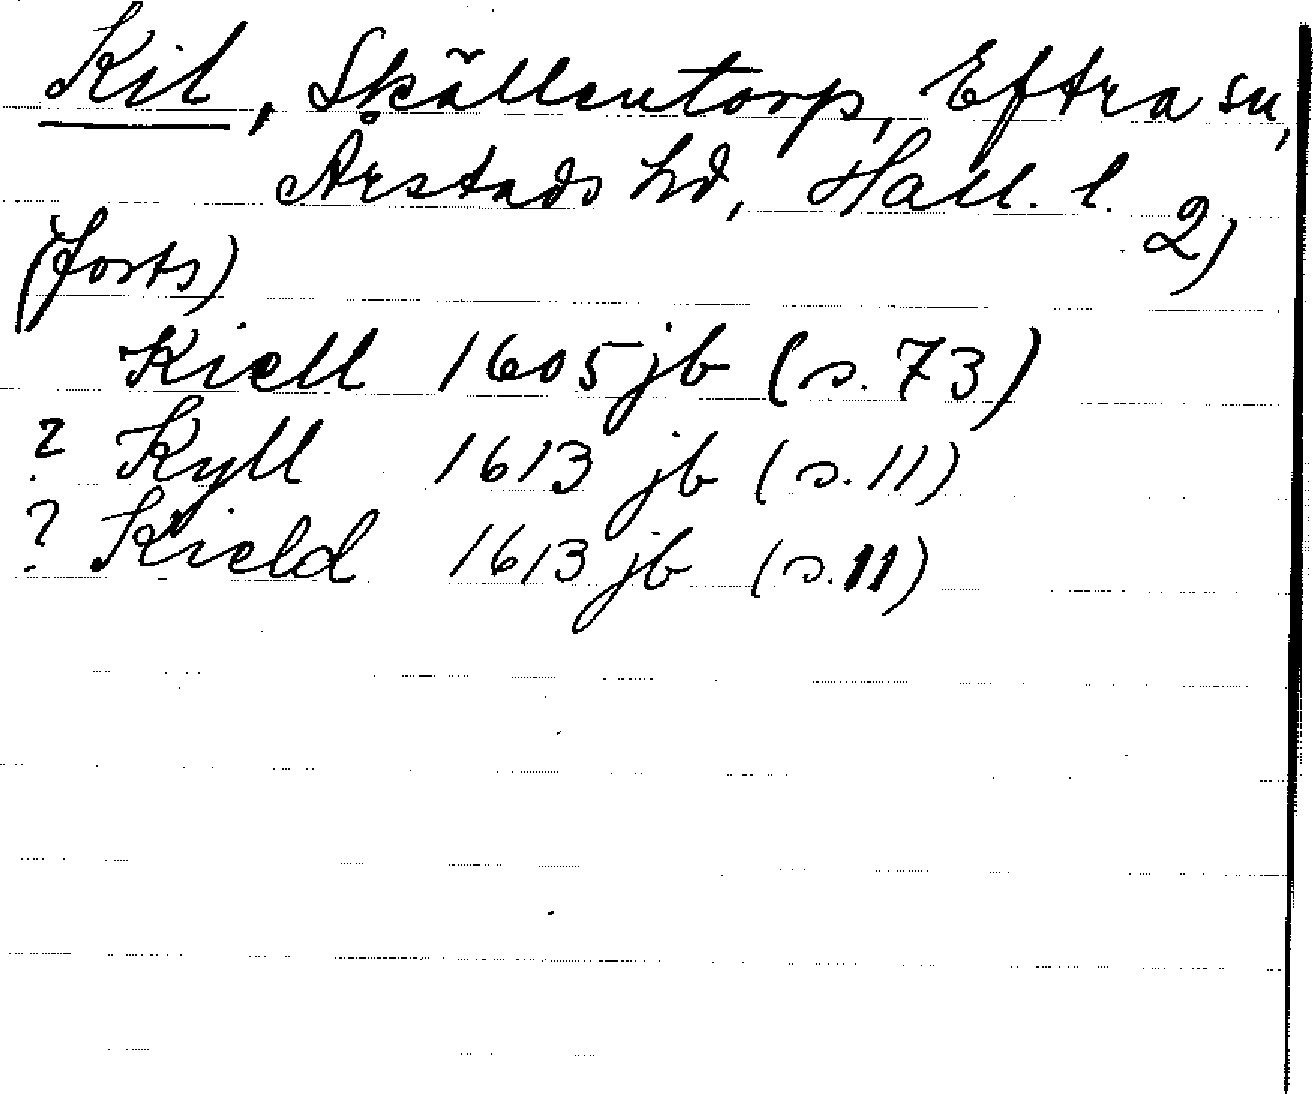 Kil, Skällentorp, Eftra sn,
Årstads hd, Hall. l.
2)
(forts)
Kiell 1605 jb (s. 73)
? Kyll 1613 jb (s. 11)
? Kield 1613 jb (s. 11)